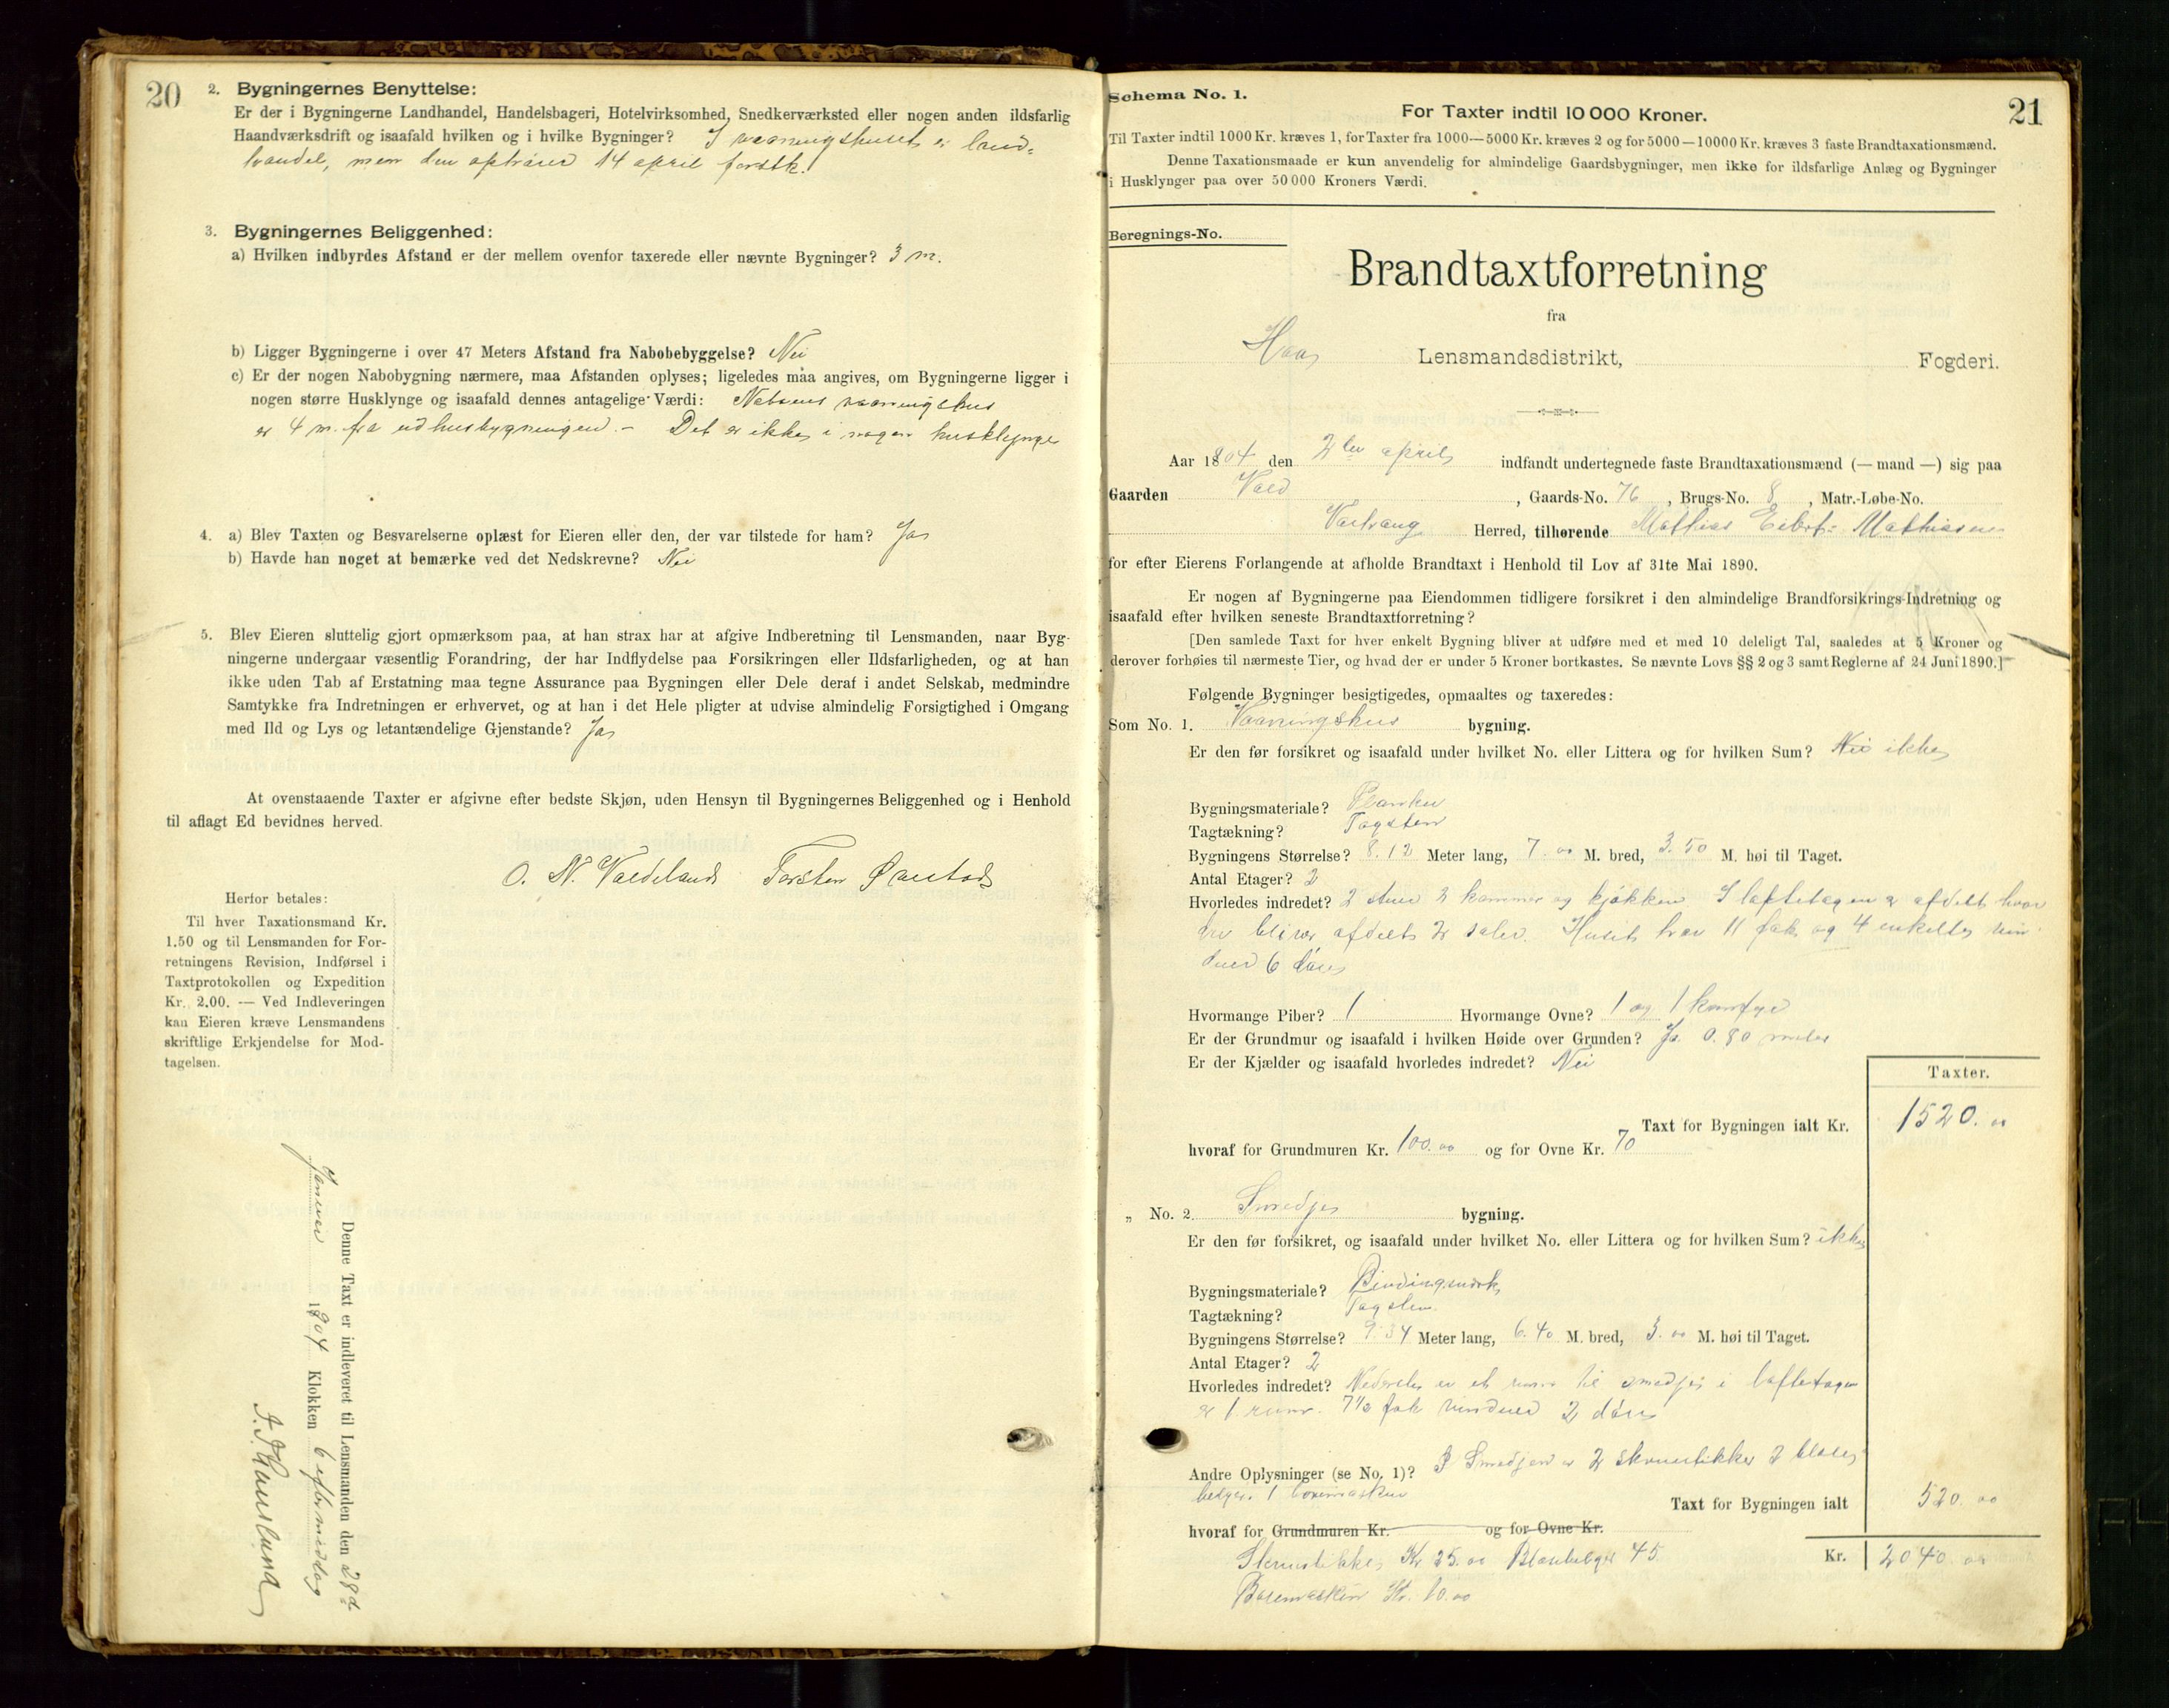 20
2. Bygningernes Benyttelse:
Er der i Bygningerne Landhandel, Handelsbageri, Hotelvirksomhed, Snedkerværksted eller nogen anden ildsfarlig
Haandværksdrift og isaafald hvilken og i hvilke Bygninger? I vaaningshuset er land-
handel, men den ophører 14 april
3. Bygningernes Beliggenhed:
a) Hvilken indbyrdes Afstand er der mellem ovenfor taxerede eller nævnte Bygninger? 3 m.
b) Ligger Bygningerne i over 47 Meters Afstand fra Nabobebyggelse? Nei
c) Er der nogen Nabobygning nærmere, maa Afstanden oplyses; ligeledes maa angives, om Bygningerne ligger i
nogen større Husklynge og isaafald dennes antagelige Værdi: vaaningshus
er 4 m. fra udhusbygningen. - Det er ikke i nogen husklynge
4. a) Blev Taxten og Besvarelserne oplæst for Eieren eller den, der var tilstede for ham? Ja
b) Havde han noget at bemærke ved det Nedskrevne? Nei
5. Blev Eieren sluttelig gjort opmærksom paa, at han strax har at afgive Indberetning til Lensmanden, naar Byg-
ningerne undergaar væsentlig Forandring, der har Indflydelse paa Forsikringen eller Ildsfarligheden, og at han
ikke uden Tab af Erstatning maa tegne Assurance paa Bygningen eller Dele deraf i andet Selskab, medmindre
Samtykke fra Indretningen er erhvervet, og at han i det Hele pligter at udvise almindelig Forsigtighed i Omgang
med Ild og Lys og letantændelige Gjenstande? Ja
At ovenstaaende Taxter er afgivne efter bedste Skjøn, uden Hensyn til Bygningernes Beliggenhed og i Henhold
til aflagt Ed bevidnes herved.
O. N. Vaedeland Torsten
Herfor betales:
Til hver Taxationsmand Kr.
1.50 og til Lensmanden for For-
retningens Revision, Indførsel i
Taxtprotokollen og Expedition
Kr. 2.00. — Ved Indleveringen
kan Eieren kræve Lensmandens
skriftlige Erkjendelse for Mod-
tagelsen.
Denne Taxt er indleveret til Lensmanden den 28d
1904 Klokken 6 eftermiddag
21
Schema No. 1.
For Taxter indtil 10 000 Kroner.
Til Taxter indtil 1000 Kr. kræves 1, for Taxter fra 1000—5000 Kr. kræves 2 og for 5000—10000 Kr. kræves 3 faste Brandtaxationsmænd.
Denne Taxationsmaade er kun anvendelig for almindelige Gaardsbygninger, men ikke for ildsfarlige Anlæg og Bygninger
i Husklynger paa over 50 000 Kroners Værdi.
Beregnings-No.
Brandtaxtforretning
fra
Haa Lensmandsdistrikt, Fogderi.
Aar 1904 den 2den april indfandt undertegnede faste Brandtaxationsmænd (— mand —) sig paa
Gaarden , Gaards-No. 76, Brugs-No. 8, Matr.-Løbe-No.
Herred, tilhørende Mathias Mathiasen
for efter Eierens Forlangende at afholde Brandtaxt i Henhold til Lov af 31te Mai 1890.
Er nogen af Bygningerne paa Eiendommen tidligere forsikret i den almindelige Brandforsikrings-Indretning og
isaafald efter hvilken seneste Brandtaxtforretning?
[Den samlede Taxt for hver enkelt Bygning bliver at udføre med et med 10 deleligt Tal, saaledes at 5 Kroner og
derover forhøies til nærmeste Tier, og hvad der er under 5 Kroner bortkastes. Se nævnte Lovs §§ 2 og 3 samt Reglerne af 24 Juni 1890.]
Følgende Bygninger besigtigedes, opmaaltes og taxeredes:
Som No. 1. Vaaningshus bygning.
Er den før forsikret og isaafald under hvilket No. eller Littera og for hvilken Sum? Nei ikke
Bygningsmateriale? Planker
Tagtækning? Tagsten
Bygningens Størrelse? 8.12 Meter lang, 7.00 M. bred, 3.50 M. høi til Taget.
Antal Etager? 2
Hvorledes indredet? 2 stuer 2 kammer og kjøkken I loftetagen er afdelt hvor
der bliver afdelt 2 saler. Huset har 11 fak og 4 enkelte vin-
duer 6 døre
Hvormange Piber? 1 Hvormange Ovne? 1 og 1 komfyr
Er der Grundmur og isaafald i hvilken Høide over Grunden? Ja 0.80 meter
Er der Kjælder og isaafald hvorledes indredet? Nei
Taxter.
Taxt for Bygningen ialt Kr. 1520.00
hvoraf for Grundmuren Kr. 100.00 og for Ovne Kr. 70
„ No. 2. Smedje bygning.
Er den før forsikret, og isaafald under hvilket No. eller Littera og for hvilken Sum? ikke
Bygningsmateriale? Bindingsverk
Tagtækning? Tagsten
Bygningens Størrelse? 9.34 Meter lang, 6.40 M. bred, 3.00 M. høi til Taget.
Antal Etager? 2
Hvorledes indredet? Nederste er et rum til smedje i loftetagen
er 1 rum. 7½ fak vinduer 2 døre
Andre Oplysninger (se No. 1)? I Smedjen er 2 skruestikker 2 blæse-
belger 1 boremaskin
Taxt for Bygningen ialt 520.00
hvoraf for Grundmuren Kr. og for Ovne Kr.
Skruestikke Kr 25.00 Blæsebelger 45
Kr. 2040.00
Boremaskin Kr. 10.00